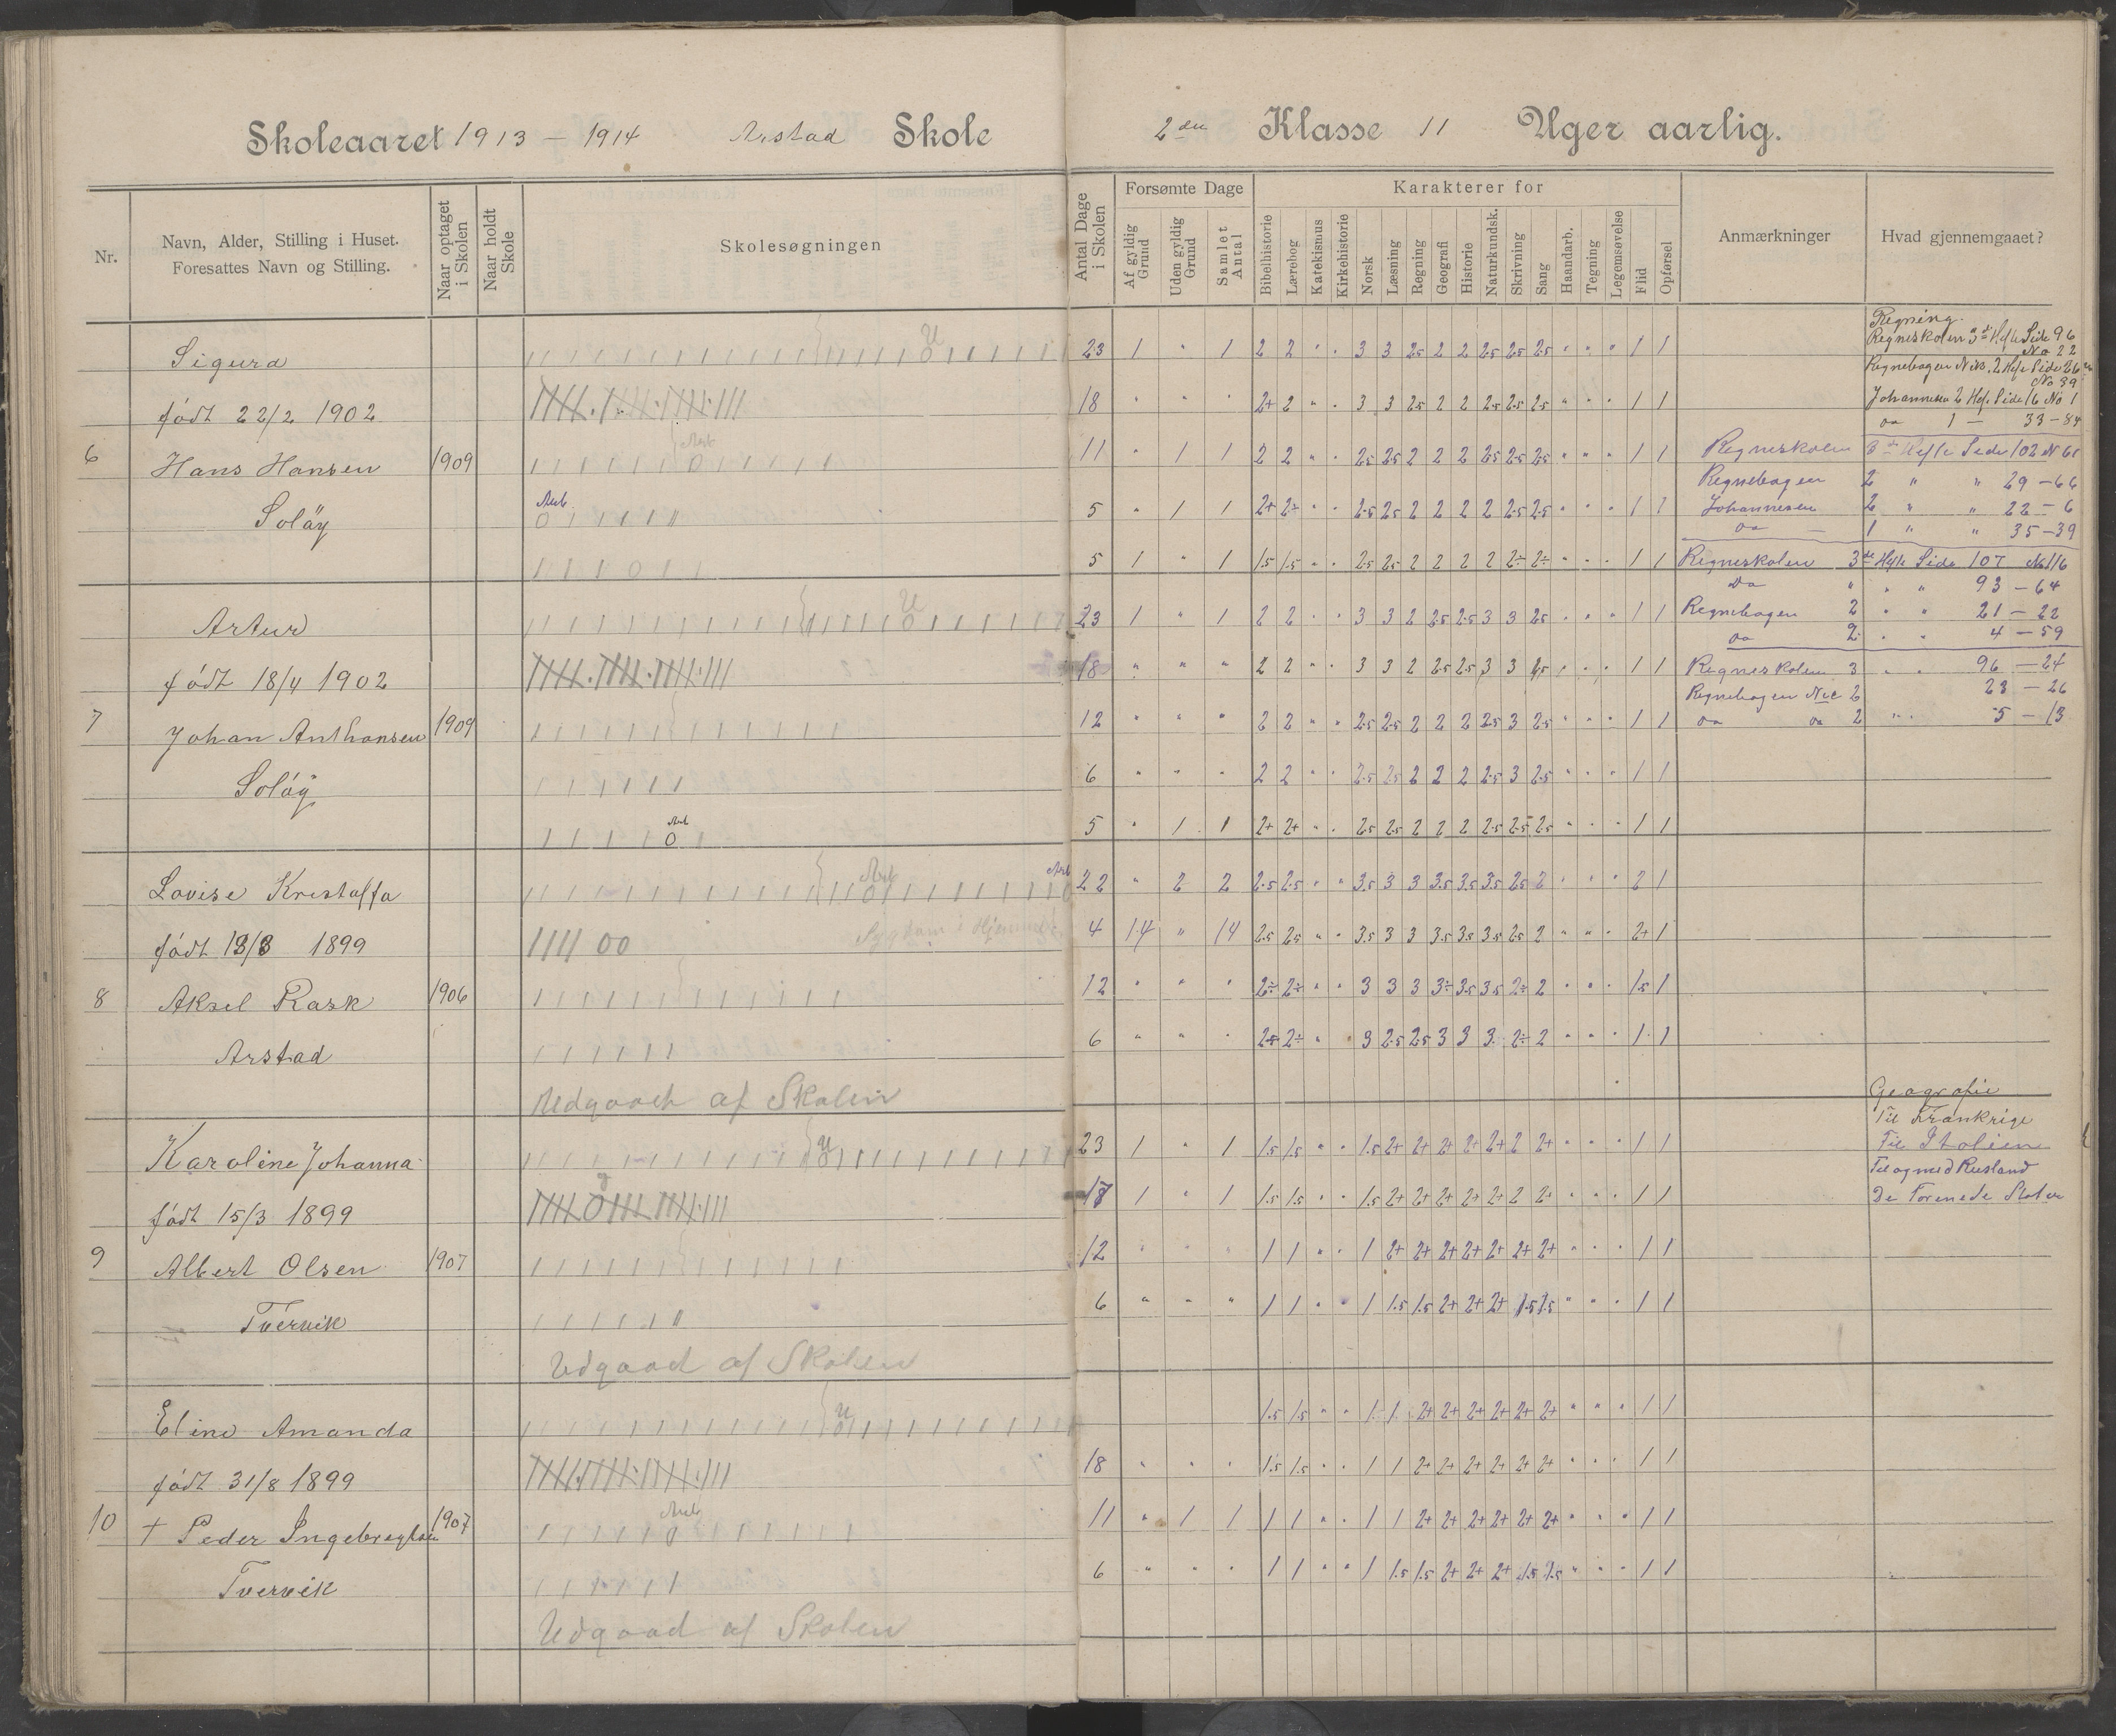 Skoleaaret 1913 – 1914 Arstad Skole
2den Klasse 11 Uger aarlig.
Nr.
Navn, Alder, Stilling i Huset.
Foresattes Navn og Stilling.
Naar optaget i Skolen
Naar holdt Skole
Skolesøgningen
Antal Dage i Skolen
Forsømte Dage
Af gyldig Grund
Uden gyldig Grund
Samlet Antal
Karakterer for
Bibelhistorie
Lærebog
Katekismus
Kirkehistorie
Norsk
Læsning
Regning
Geografi
Historie
Naturkundsk.
Skrivning
Sang
Haandarb.
Tegning
Legemsøvelse
Flid
Opførsel
Anmærkninger
Hvad gjennemgaaet?
Sigurd 23 1 " 1 2 2 " " 3 3 2.5 2 2 2.5 2.5 2.5 " " " 1 1
født 22/2 1902 18 " " " 2+ 2 " " 3 3 2.5 2 2 2.5 2.5 2.5 " " " 1 1
6 Hans Hansen 1909 11 " 1 1 2 2 " " 2.5 2.5 2 2 2 2.5 2.5 2.5 " " " 1 1
Soløy 5 " 1 1 2+ 2÷ " " 2.5 2.5 2 2 2 2 2.5 2.5 " " " 1 1
5 1 " 1 1.5 1.5 " " 2.5 2.5 2 2 2 2 2÷ 2÷ " " " 1 1
Artur 23 1 " 1 2 2 " " 3 3 2 2.5 2.5 3 3 2.5 " " " 1 1
født 18/4 1902 18 " " " 2 2 " " 3 3 2 2.5 2.5 3 3 2.5 " " " 1 1
7 Johan Anthonsen 1909 12 " " " 2 2 " " 2.5 2.5 2 2 2 2.5 3 2.5 " " " 1 1
Soløy 6 " " " 2 2 " " 2.5 2.5 2 2 2 2.5 3 2.5 " " " 1 1
5 " 1 1 2+ 2+ " " 2.5 2.5 2 2 2 2.5 2.5 2.5 " " " 1 1
Lovise Kristoffa 22 " 2 2 2.5 2.5 " " 3.5 3 3 3.5 3.5 3.5 2.5 2 " " " 2 1
født 13/8 1899 Sygdom i Hjemmet 4 14 " 14 2.5 2.5 " " 3.5 3 3 3.5 3.5 3.5 2.5 2 " " " 2+ 1
8 Aksel Rask 1906 12 " " " 2÷ 2÷ " " 3 3 3 3÷ 3.5 3.5 2÷ 2 " " " 1.5 1
Arstad 6 " " " 2.5 2÷ " " 3 2.5 2.5 3 3 3 2÷ 2 " " " 1 1
Udgaaet af Skolen
Karoline Johanna 23 1 " 1 1.5 1.5 " " 1.5 2+ 2+ 2+ 2+ 2+ 2 2+ " " " 1 1
født 15/3 1899 17 1 " 1 1.5 1.5 " " 1.5 2+ 2+ 2+ 2+ 2+ 2 2+ " " " 1 1
9 Albert Olsen 1907 12 " " " 1 1 " " 1 2+ 2+ 2+ 2+ 2+ 2+ 2+ " " " 1 1
Tvervik 6 " " " 1 1 " " 1 1.5 1.5 2+ 2+ 2+ 1.5 1.5 " " " 1 1
Udgaad af Skolen
Eline Amanda 1.5 1.5 " " 1 1 2+ 2+ 2+ 2+ 2+ 2+ " " " 1 1
født 31/8 1899 18 " " " 1.5 1.5 " " 1 1 2+ 2+ 2+ 2+ 2+ 2+ " " " 1 1
10 + Peder Ingebregtsen 1907 11 " 1 1 1 1 " " 1 1 2+ 2+ 2+ 2+ 2+ 2+ " " " 1 1
Tvervik 6 " " " 1 1 " " 1 1.5 1.5 2+ 2+ 2+ 1.5 1.5 " " " 1 1
Udgaad af Skolen
Regning.
Regneskolen 3de Hefte Side 96
No 22
Regnebogen Nic. 2 Hefte Side 26
No 39
Johannesen 2 Hef. Side 16 No 1
do 1 — 33 – 84
Regneskolen 3de Hefte Side 102 N 61
Regnebogen 2 " " 29 – 66
Johannesen 2 " " 22 – 6
do — 1 " " 35 – 39
Regneskolen 3de Hefte Side 107 No 116
Do " " " 93 – 64
Regnebogen 2 " " 21 – 22
do 2 " " 4 – 59
Regneskolen 3 " " 96 – 24
Regnebogen Nic 2 23 – 26
do do 2 " " 5 – 13
Geografie
Til Frankrige
Til Italien
Til og med Rusland
De Forenede Stater